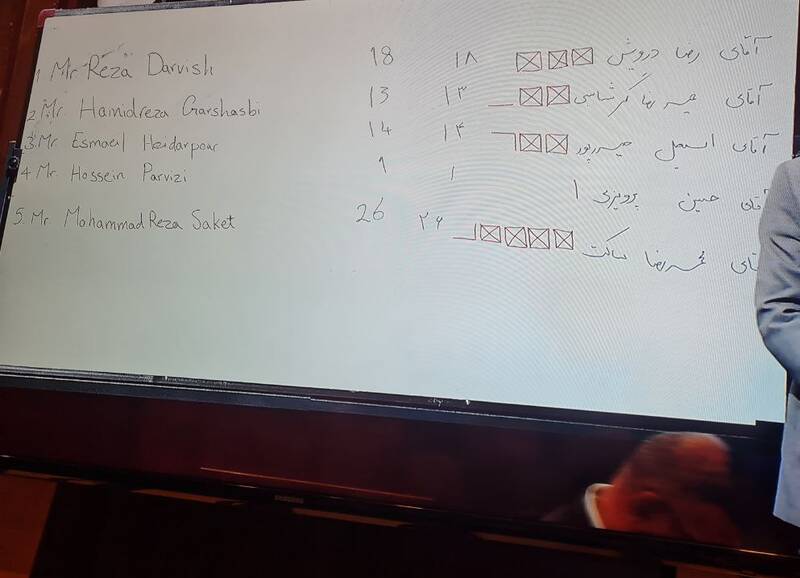 1 Mr Reza Darvish 18 ۱۸ آقای رضا درویش
2. Mr. Hamidreza Garshasbi 13 ۱۳ آقای حمیدرضا گرشاسبی
3. Mr Esmaeil Heidarpour 14 ۱۴ آقای اسمعیل حیدرپور
4. Mr. Hossein Parvizi 1 ۱ آقای حسین پرویزی ۱
5. Mr. Mohammad Reza Saket 26 ۲۶ آقای محمدرضا ساکت